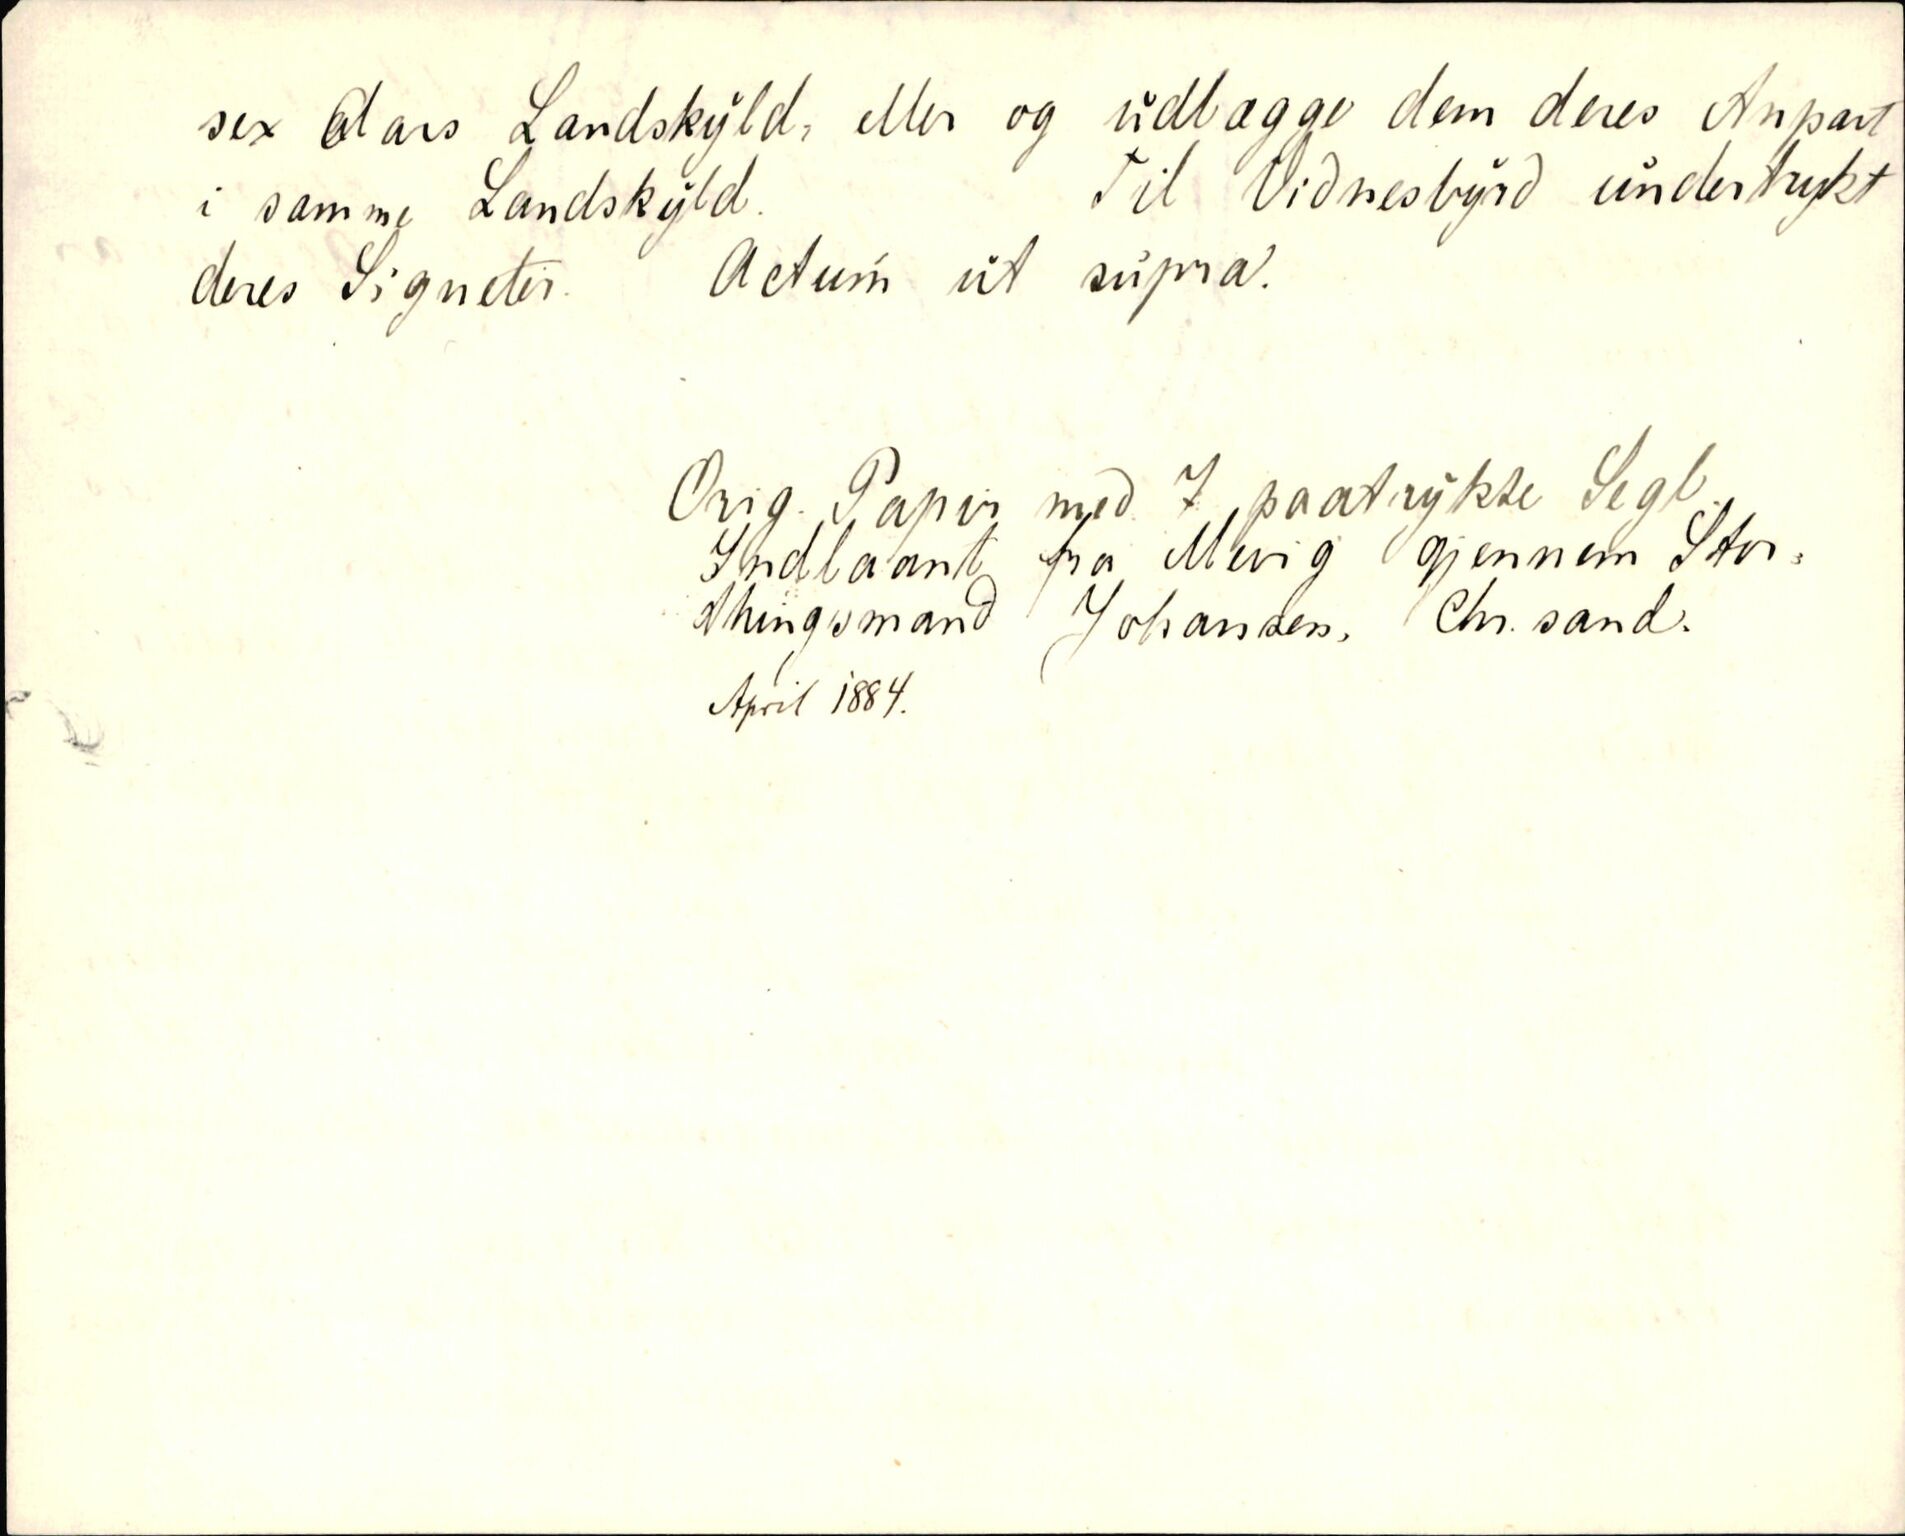 sex Alars Landskyld, eller og udlægge dem deres Anpart
i samme Landskyld. Til Vidnesbyrd undertrykt
deres Signeter. Actum ut supra.
Orig. Papir med 7 paatrykte Segl.
Indlaant fra Mevig gjennem Stor-
thingsmand Johansen, Chr. sand.
April 1884.